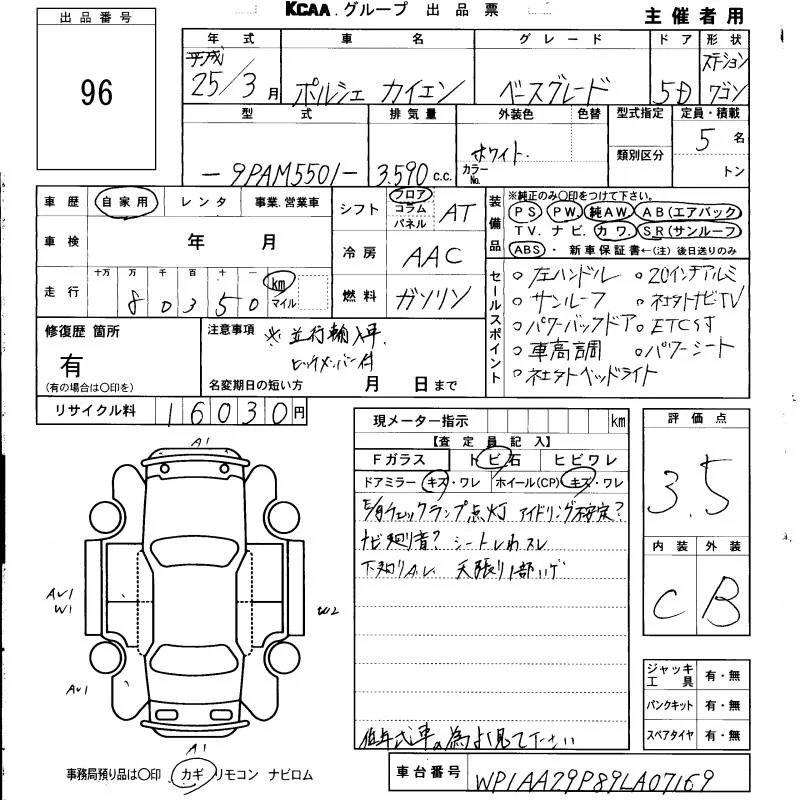 KCAA グループ 出品票 主催者用
出品番号
96
年式 車名 グレード ドア 形状
平成 25/3月 ポルシェ カイエン ベースグレード 5D ステーションワゴン
型式 排気量 外装色 色替 型式指定 定員・積載
- 9PAM5501- 3.590 c.c. ホワイト カラーNo. 類別区分 5名
トン
車歴 自家用 レンタ 事業.営業車
車検 年 月
走行 十万 万 千 百 十 一 km マイル
80350
シフト フロア コラム パネル AT
冷房 AAC
燃料 ガソリン
装備品 ※純正のみ○印をつけて下さい。
PS PW. 純AW. AB(エアバック)
TV. ナビ. カワ. SR(サンルーフ)
ABS ・ 新車保証書←(注)後日送りのみ
セールスポイント
○左ハンドル ○20インチアルミ
○サンルーフ ○社外ナビTV
○パワーバックドア ○ETC付
○車高調 ○パワーシート
○社外ヘッドライト
修復歴 箇所
有
(有の場合は○印を)
注意事項 ※並行輸入車.
名変期日の短い方 月 日まで
リサイクル料 16030円
現メーター指示 km
【査定員記入】
Fガラス トビ石 ヒビワレ
ドアミラー キズ・ワレ ホイール(CP) キズ・ワレ
チェックランプ点灯 アイドリング不安定?
ナビ廻り音? シートしわスレ
下廻り 天張り1部
低年式車の為よく見て下さい
評価点
3.5
内装 外装
C B
ジャッキ工具 有・無
パンクキット 有・無
スペアタイヤ 有・無
A1
AU1
W1
W2
AU1
A1
事務局預り品は○印 カギ リモコン ナビロム
車台番号 WP1AA29P89LA07169